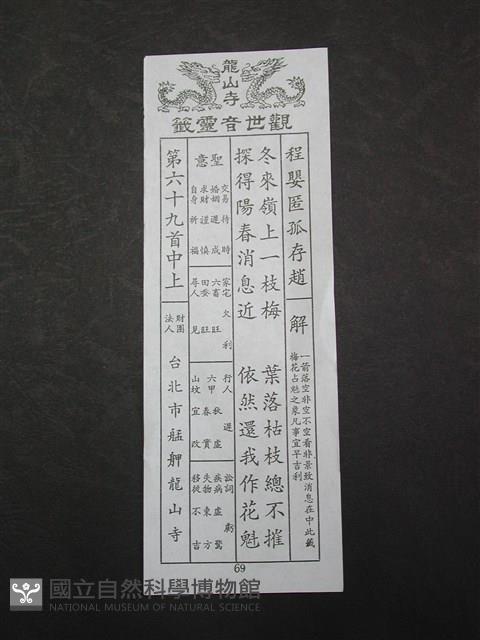 龍山寺
觀世音靈籤
程嬰匿孤存趙
解
一箭落空非空不空看非景致消息在中此籤
梅花占魁之象凡事宜早吉利
冬來嶺上一枝梅
葉落枯枝總不摧
探得陽春消息近
依然還我作花魁
聖意
交易待時
婚姻遲成
求財謹慎
自身祈福
家宅欠利
六畜旺
田蚕旺
尋人見
行人遲
六甲春實秋虛
山墳宜改
訟詞虧
疾病虛驚
失物東方
移徙不吉
第六十九首中上
財團法人
台北市艋舺龍山寺
69
國立自然科學博物館
NATIONAL MUSEUM OF NATURAL SCIENCE